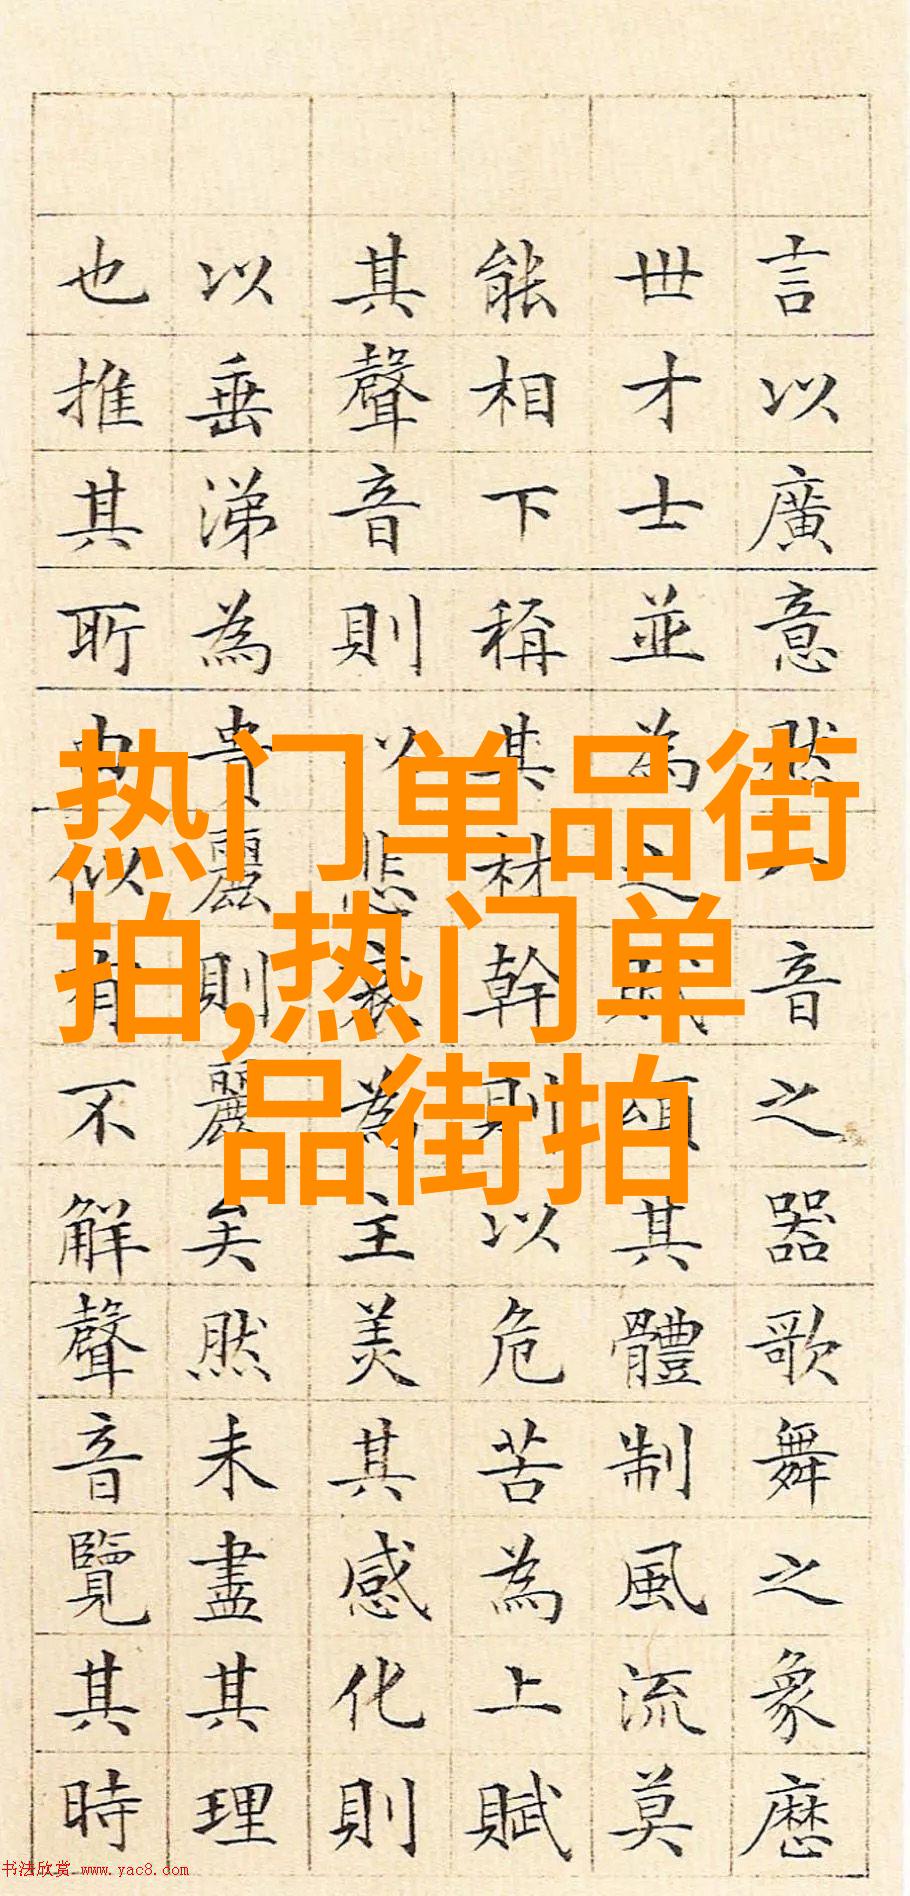 言以廣意然音之器歌舞之象歷
世才士並為之賦頌其體制風流莫
能相下稱其材幹則以危苦為上賦
其聲音則以悲哀為主美其感化則
以垂涕為貴麗則麗矣然未盡其理
也推其所由似有不解聲音覽其時
热门单品街
拍,热门单
品街拍
书法欣赏 www.yac8.com